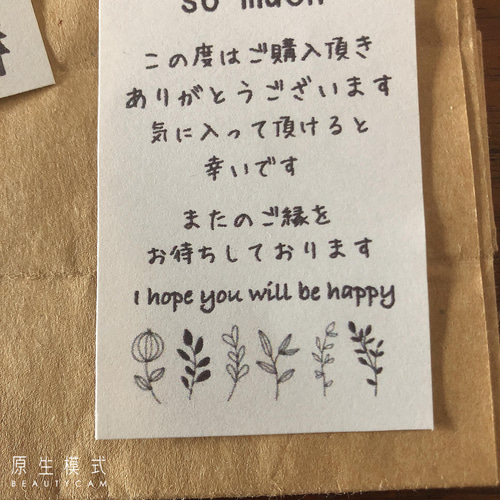 so much
この度はご購入頂き
ありがとうございます
気に入って頂けると
幸いです
またのご縁を
お待ちしております
I hope you will be happy
原生模式
BEAUTYCAM